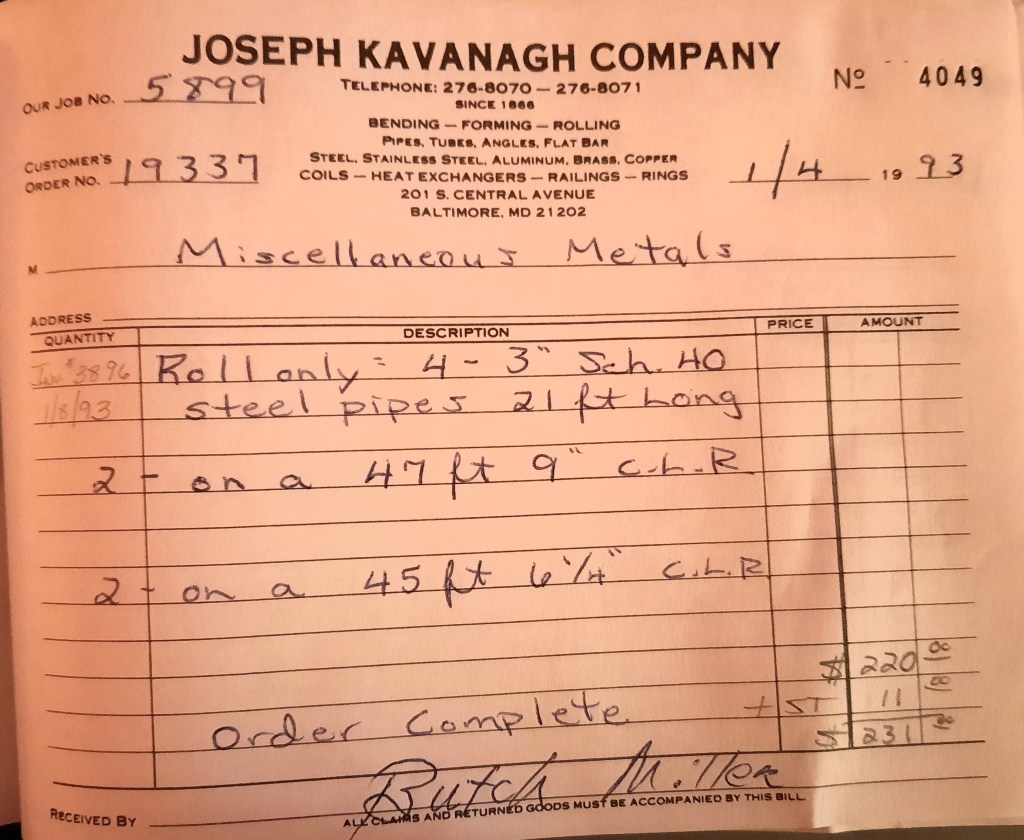 JOSEPH KAVANAGH COMPANY
Nº 4049
OUR JOB NO. 5899
TELEPHONE: 276-8070 — 276-8071
SINCE 1866
BENDING — FORMING — ROLLING
PIPES, TUBES, ANGLES, FLAT BAR
CUSTOMER'S ORDER NO. 19337
STEEL, STAINLESS STEEL, ALUMINUM, BRASS, COPPER
COILS — HEAT EXCHANGERS — RAILINGS — RINGS
1/4 19 93
201 S. CENTRAL AVENUE
BALTIMORE, MD 21202
M Miscellaneous Metals
ADDRESS
QUANTITY DESCRIPTION PRICE AMOUNT
Inv #3896 Roll only: 4 - 3" Sch. 40
1/8/93 steel pipes 21 ft Long
2 - on a 47 ft 9" C.L.R
2 - on a 45 ft 6 1/4" C.L.R
$ 220 00
+ ST 11 00
Order Complete $ 231 00
RECEIVED BY Butch Miller
ALL CLAIMS AND RETURNED GOODS MUST BE ACCOMPANIED BY THIS BILL